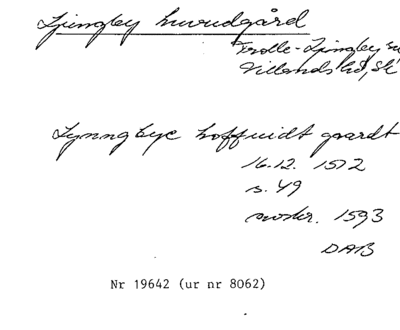 Ljungby huvudgård
Trolle-Ljungby
Villands hd, Sk
Lynngbye hoffuidt gaardt
16.12. 1572
s. 49
avskr. 1593
DAB
Nr 19642 (ur nr 8062)